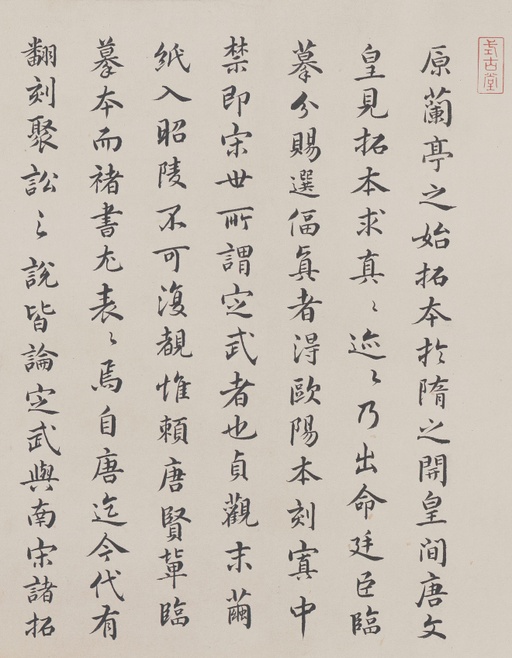 原蘭亭之始拓本於隋之開皇间唐文
皇見拓本求真〻迹〻乃出命廷臣臨
摹分賜選偪真者淂歐陽本刻寘中
禁即宋世所謂定武者也貞觀末繭
紙入昭陵不可復覩惟賴唐賢輩臨
摹本而褚書尤表〻焉自唐迄今代有
翻刻聚訟之說皆論定武與南宋諸拓